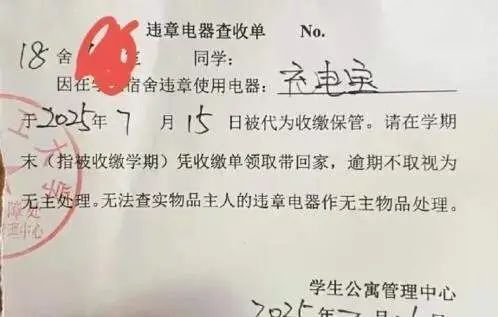 违章电器查收单 No.
18舍 同学：
因在学 宿舍违章使用电器：充电宝
于2025年7月15日被代为收缴保管。请在学期
末（指被收缴学期）凭收缴单领取带回家，逾期不取视为
无主处理。无法查实物品主人的违章电器作无主物品处理。
大学
管理中心
学生公寓管理中心
2025年7月